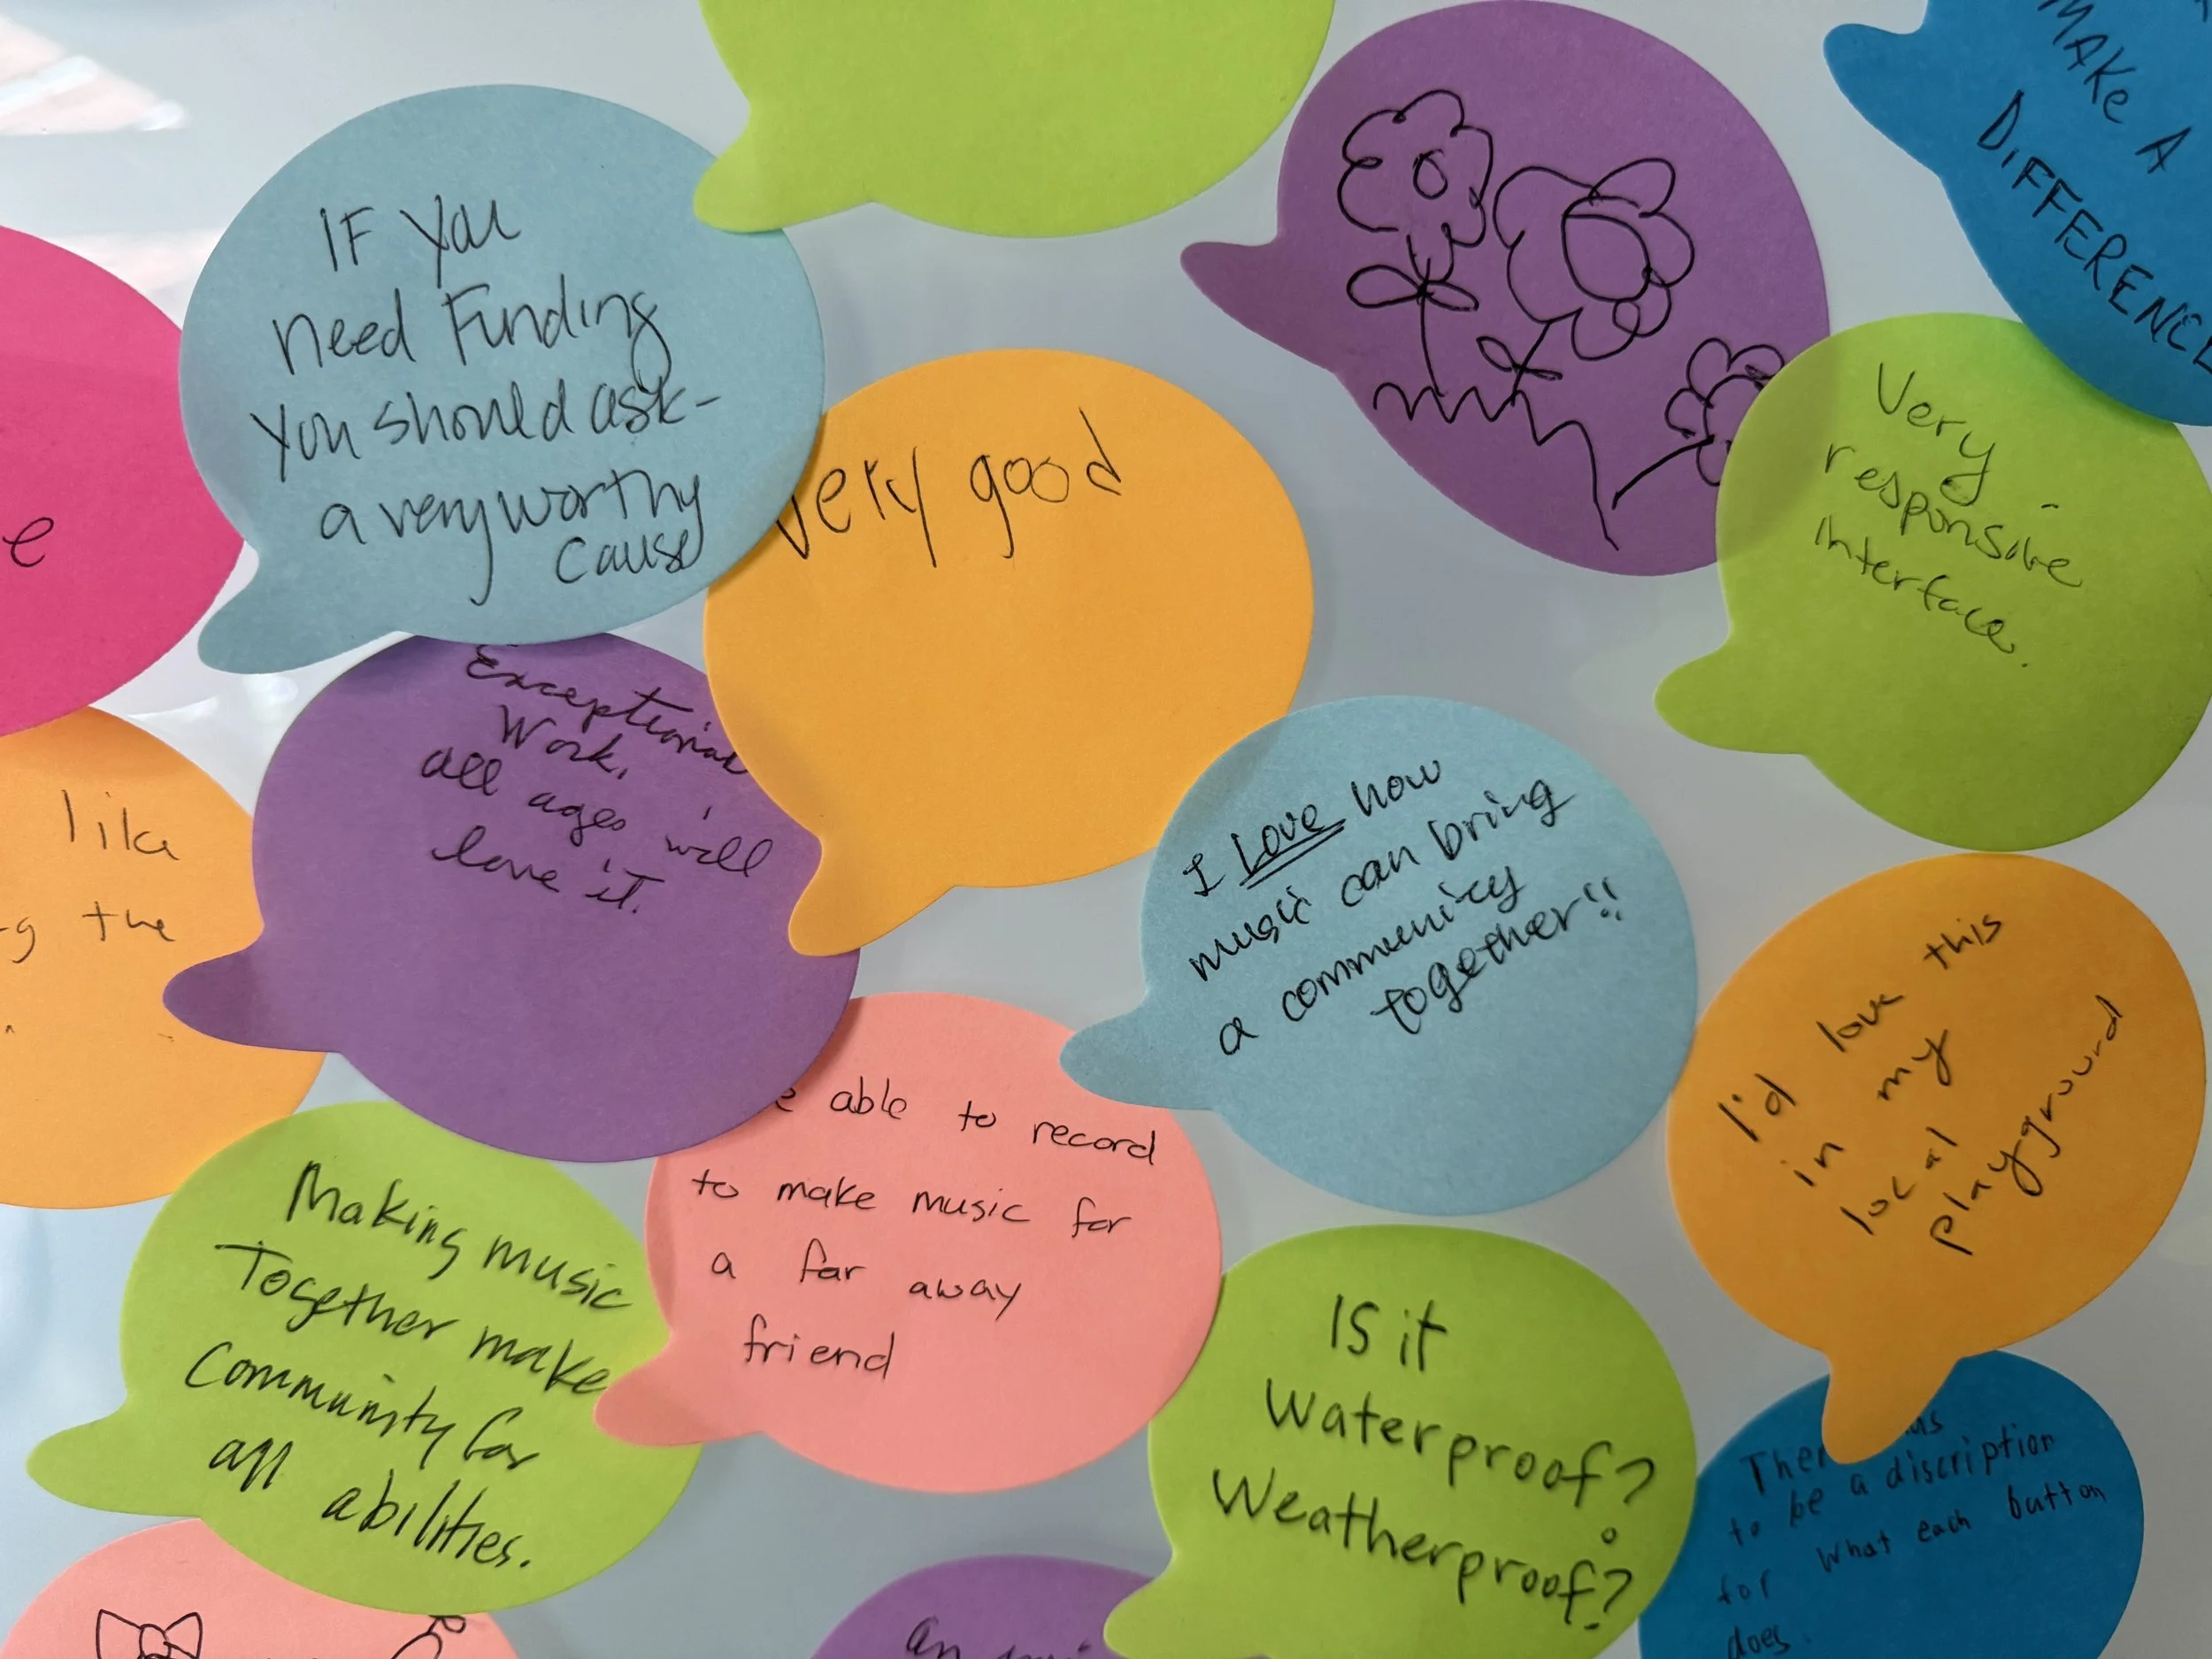 MAKE A
DIFFERENC
IF you
need Funding
you should ask-
a very worthy
cause
Very good
Very
responsive
interface.
e
Exceptional
Work,
all ages will
love it.
like
the
I Love how
music can bring
a community
together!!
I'd love this
in my
local
playground
able to record
to make music for
a far away
friend
Making music
Together make
Community for
all abilities.
Is it
Waterproof?
Weatherproof?
to be a discription
for what each button
does.
an